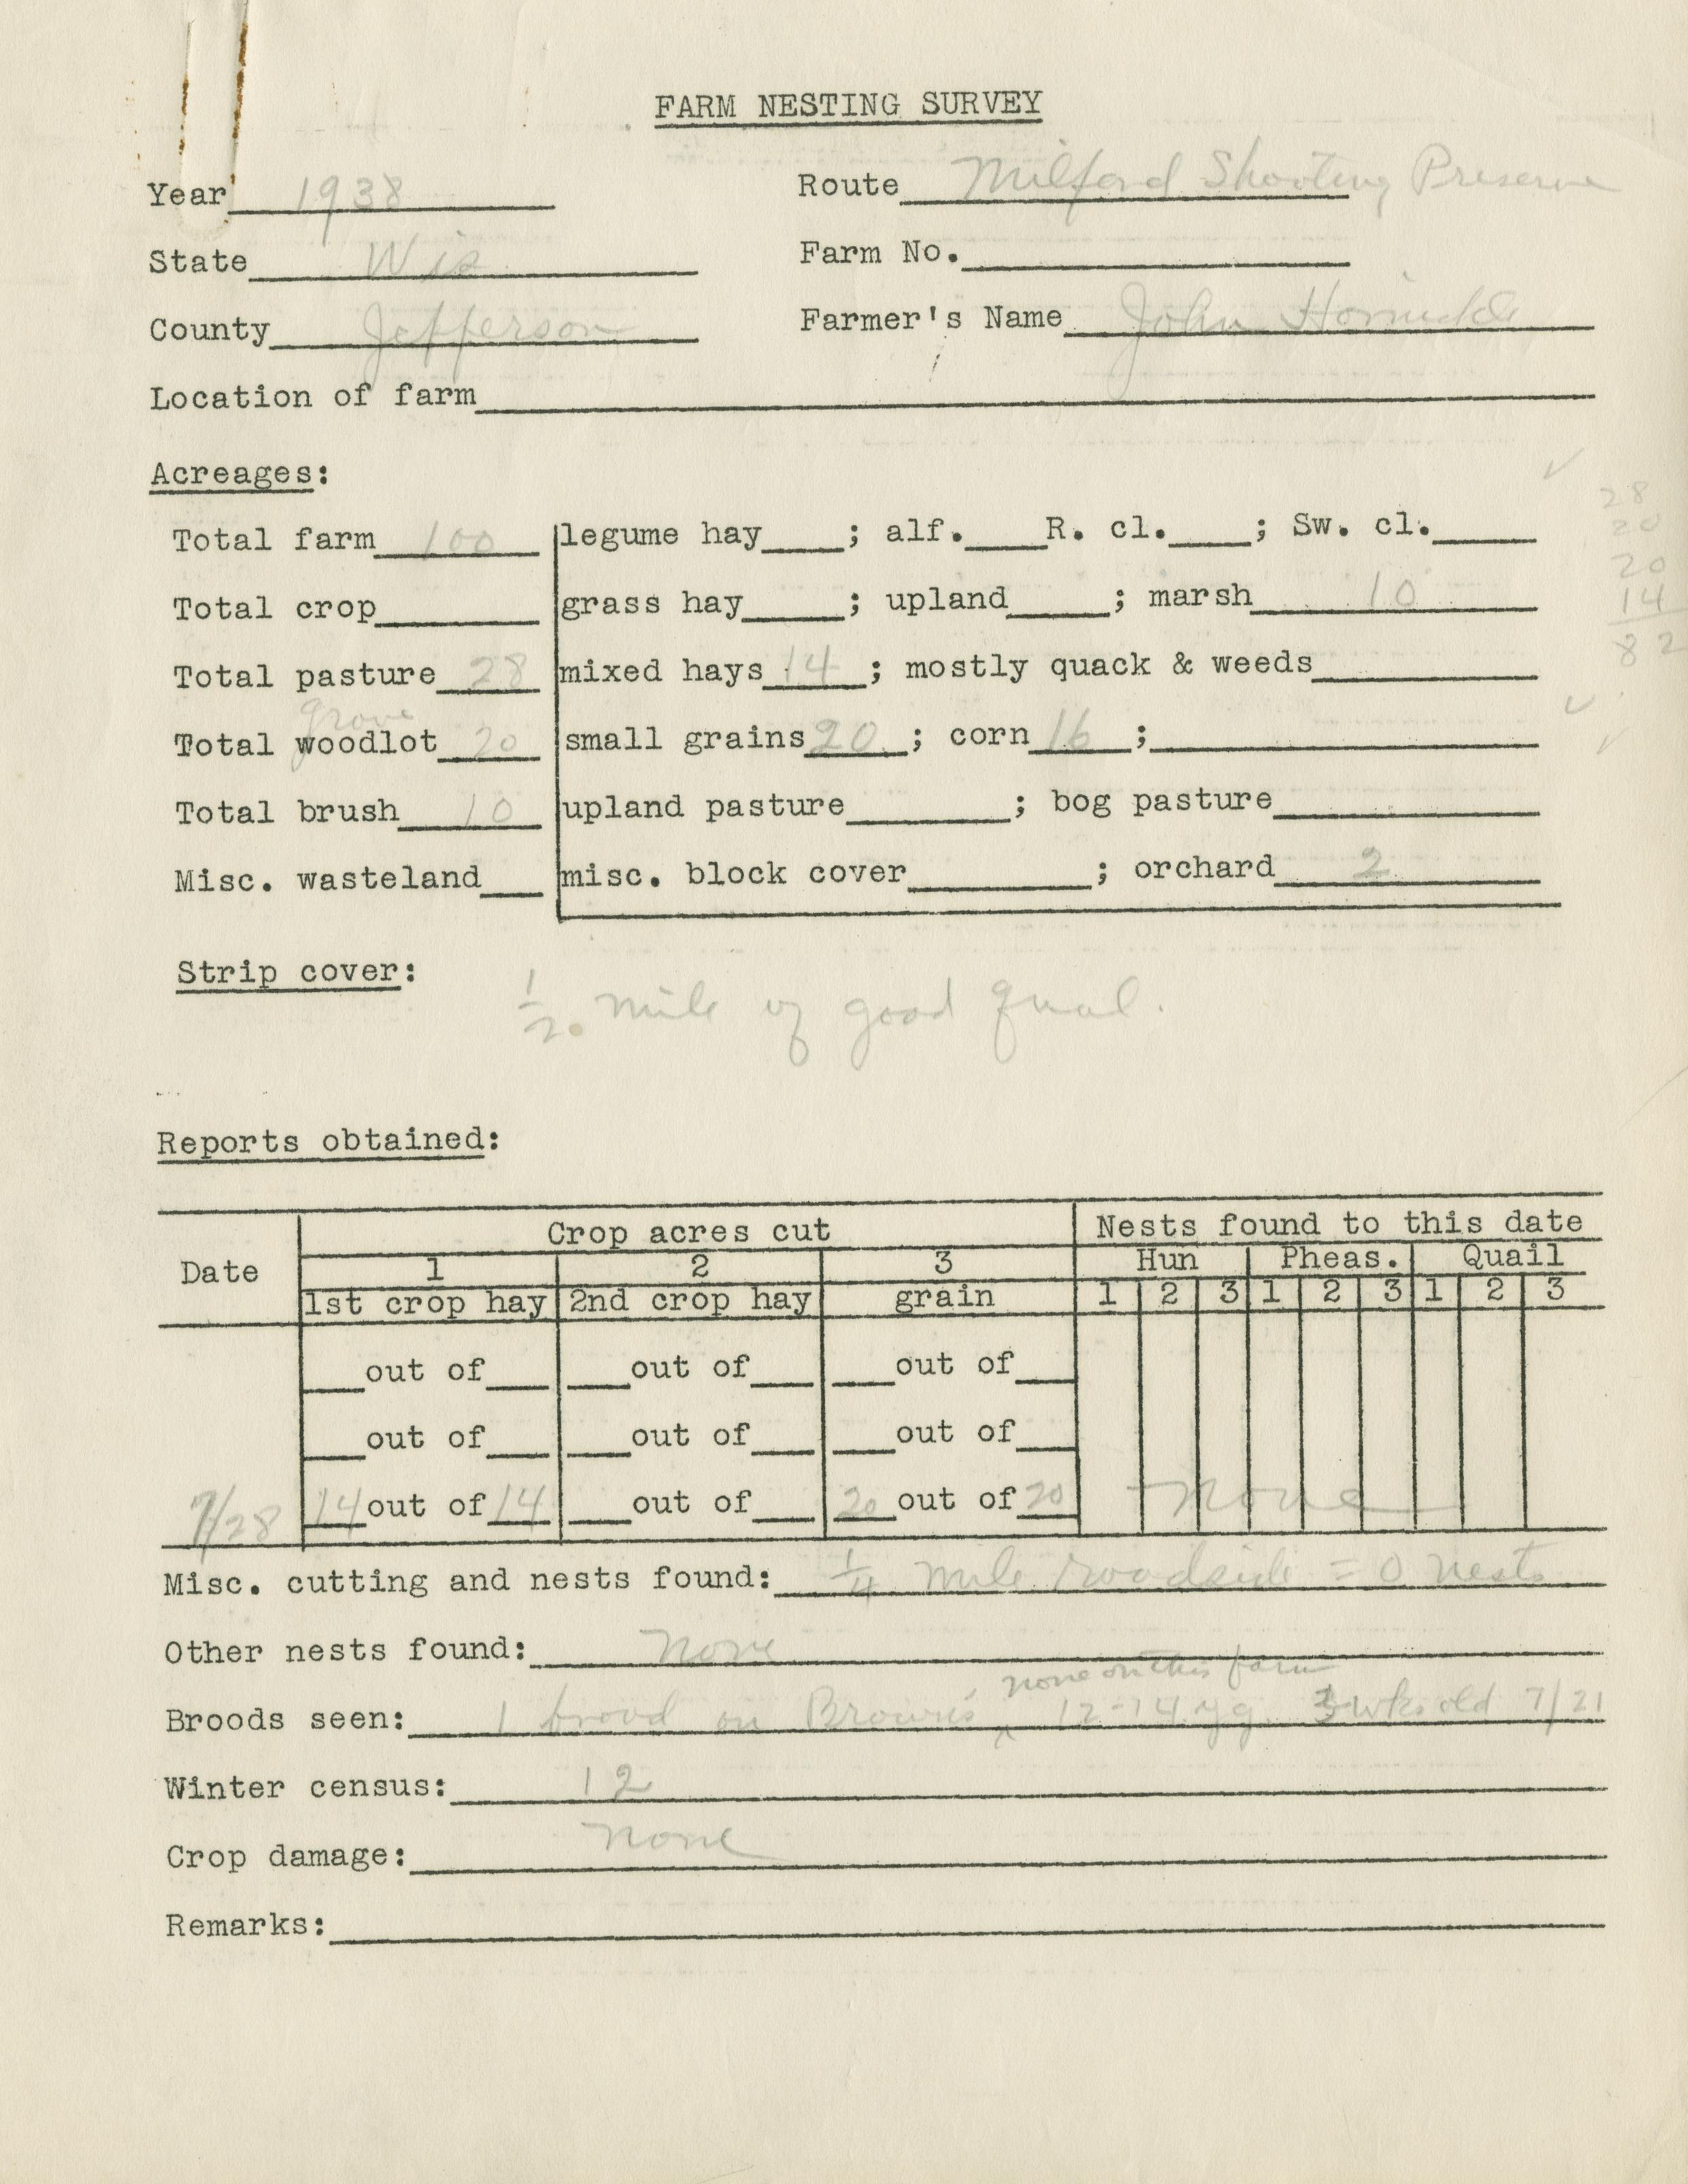 FARM NESTING SURVEY
Year 1938 Route Milford Shooting Preserve
State Wis Farm No.
County Jefferson Farmer's Name John
Location of farm
Acreages:
Total farm 100 legume hay ; alf. R. cl. ; Sw. cl.
Total crop grass hay ; upland ; marsh 10
Total pasture 28 mixed hays 14 ; mostly quack & weeds
grove
Total woodlot 20 small grains 20 ; corn 16 ;
Total brush 10 upland pasture ; bog pasture
Misc. wasteland misc. block cover ; orchard 2
28
20
20
14
82
Strip cover:
1/2 mile of good qual.
Reports obtained:
Crop acres cut Nests found to this date
Date 1 2 3 Hun Pheas. Quail
1st crop hay 2nd crop hay grain 1 2 3 1 2 3 1 2 3
out of out of out of
out of out of out of
7/28 14 out of 14 out of 20 out of 20 none
Misc. cutting and nests found: 1/4 mile roadside = 0 nests
Other nests found: none
none on this farm
Broods seen: 1 brood on Brown's 12-14 yg. 3 wks old 7/21
Winter census: 12
Crop damage: none
Remarks: